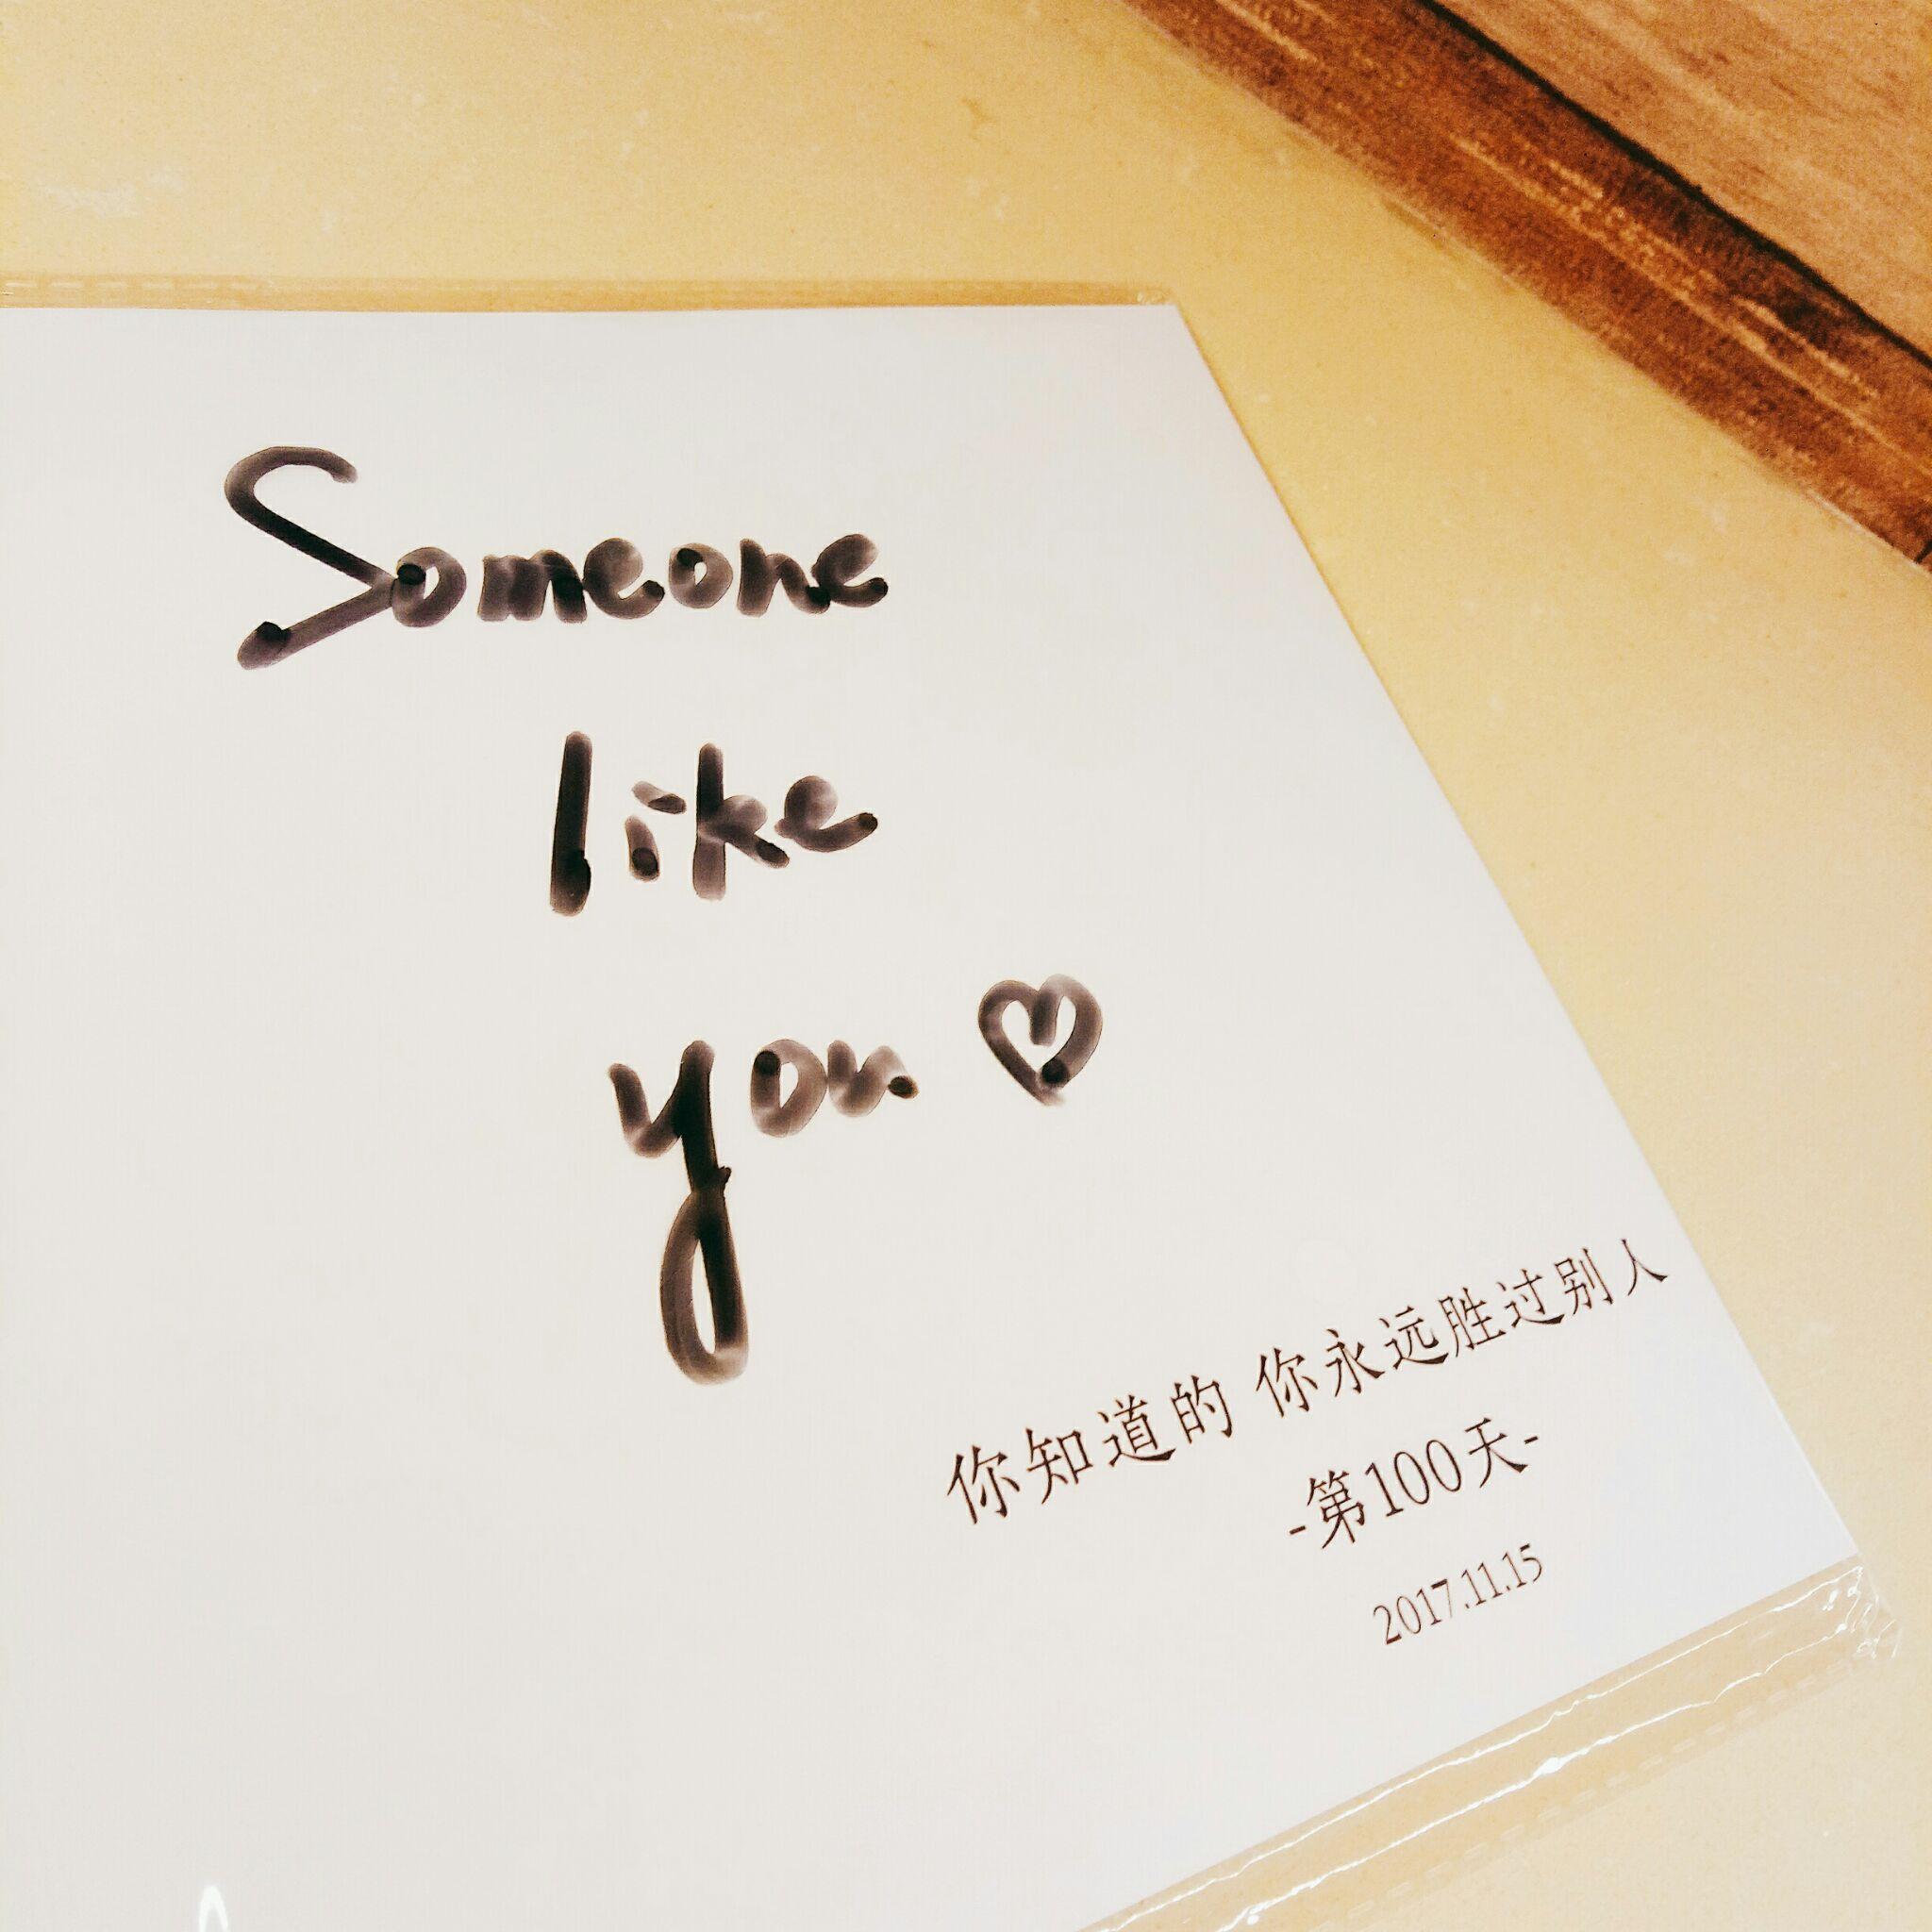 Someone
like
you ♡
你知道的 你永远胜过别人
-第100天-
2017.11.15